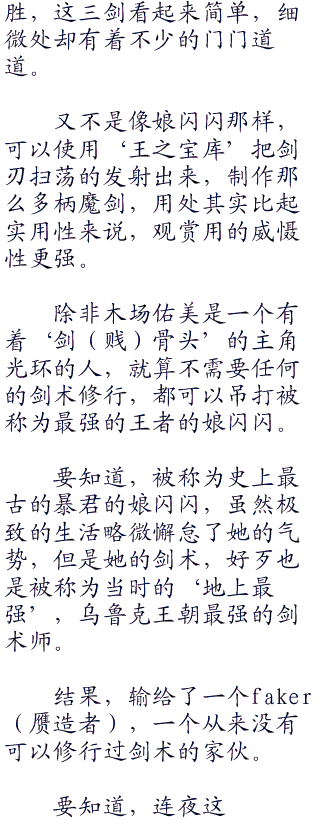 胜，这三剑看起来简单，细
微处却有着不少的门门道
道。
又不是像娘闪闪那样，
可以使用‘王之宝库’把剑
刃扫荡的发射出来，制作那
么多柄魔剑，用处其实比起
实用性来说，观赏用的威慑
性更强。
除非木场佑美是一个有
着‘剑（贱）骨头’的主角
光环的人，就算不需要任何
的剑术修行，都可以吊打被
称为最强的王者的娘闪闪。
要知道，被称为史上最
古的暴君的娘闪闪，虽然极
致的生活略微懈怠了她的气
势，但是她的剑术，好歹也
是被称为当时的‘地上最
强’，乌鲁克王朝最强的剑
术师。
结果，输给了一个faker
（赝造者），一个从来没有
可以修行过剑术的家伙。
要知道，连夜这